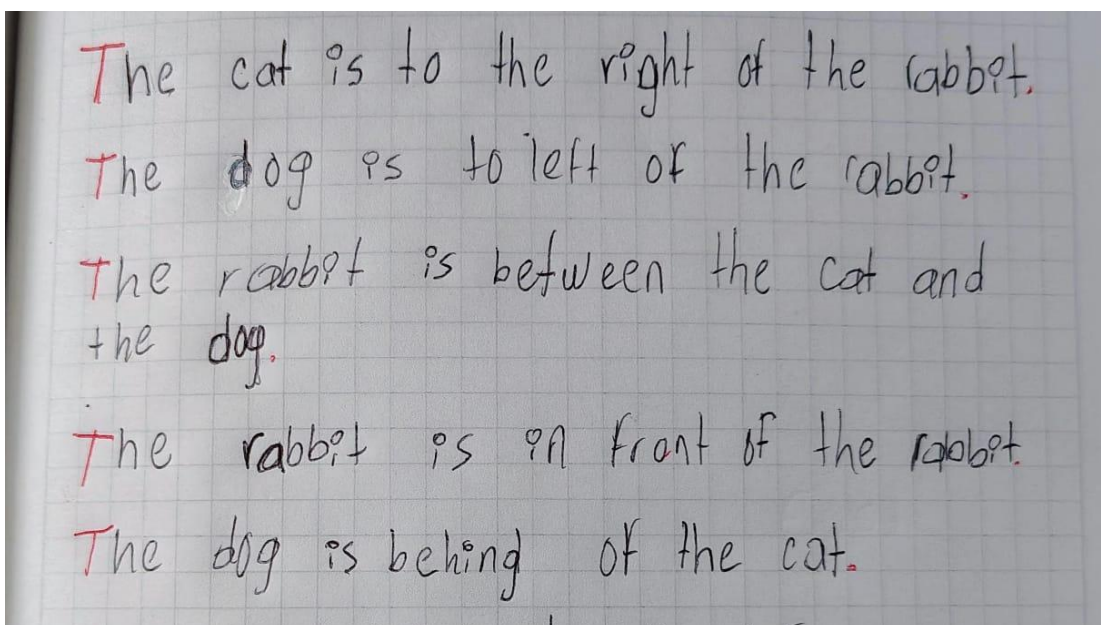 The cat is to the right of the rabbit.
The dog is to left of the rabbit.
The rabbit is between the cat and
the dog.
The rabbit is in front of the rabbit.
The dog is behing of the cat.